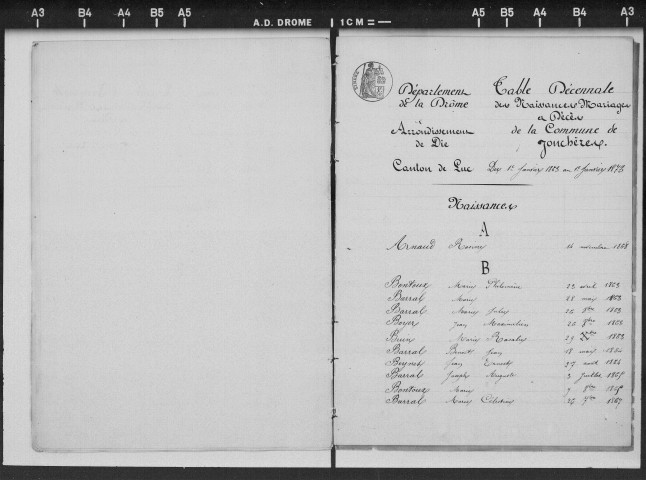 A3 B4 A4 B5 A5 A.D. DROME 1CM = A5 B5 A4 B4 A3
Département
de la Drôme
Arrondissement
de Die
Canton de Luc
Table Décennale
des Naissances Mariages
et Décès
de la Commune de
Jonchères.
Du 1er Janvier 1863 au 1er Janvier 1873
Naissances
A
Arnaud 14 novembre 1868
B
Bontoux Marie Philomène 23 avril 1863
Barral Marie 15 mai 1863
Barral Marie Julie 1863
Boyer Jean Maximilien 1863
Brun Marie Rosalie 29 1863
Barral Benoit Jean 18 mai 1864
Jean 27 avril 1864
Barral Joseph Auguste 3 juillet 1865
Bontoux Marie 7 8bre
Barral Marie 7bre 1867